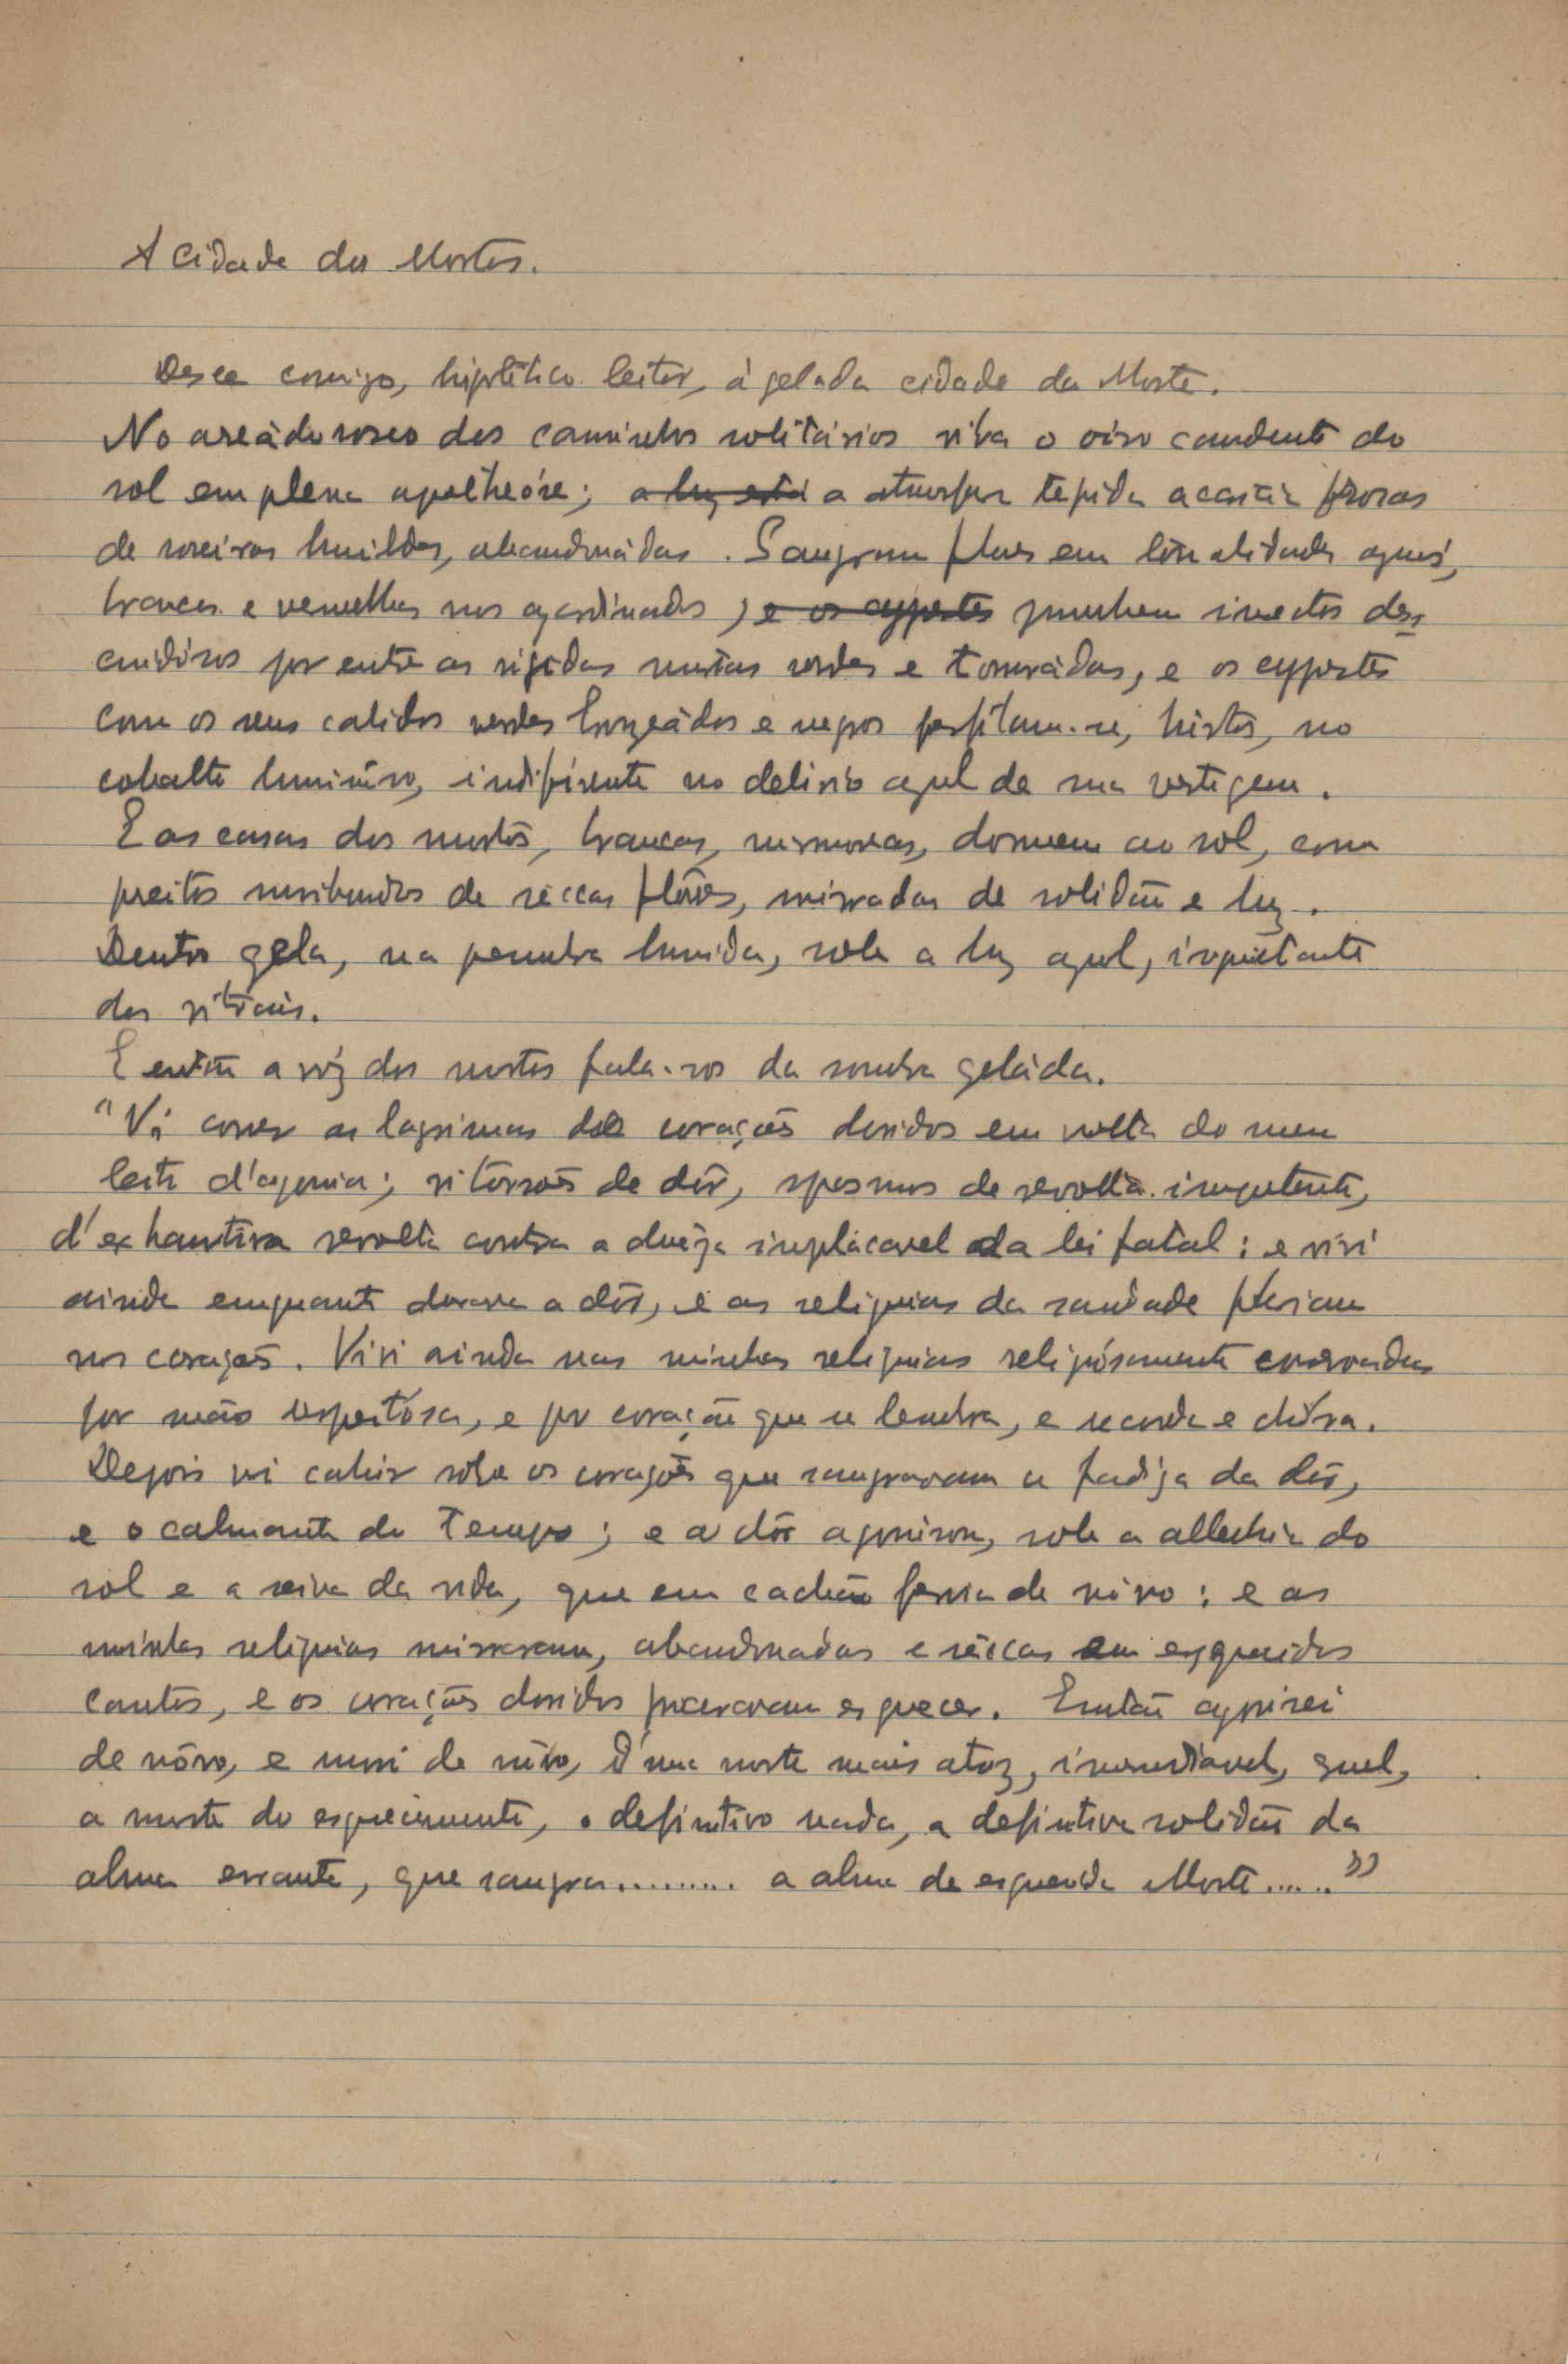 A Cidade dos Mortos.
Desce comigo, hipotético leitor, á gelada cidade da Morte.
No areádo roseo dos caminhos solitários vibra o oiro candente do
sol em plena apotheóse; a luz está a atmosfera tepida acaricia
de roseiras humildes, abandonádas. Sangram flores em tonalidades
brancas e vermelhas nos ajardinados, e os cyprestes zumbem insectos des=
cuidósos por entre as rigidas murtas verdes e torneádas, e os cyprestes
com os seus calidos verdes bronzeádos e negros perfilam-se, hirtos, no
cobalto luminôso, indiferente no delirio azul de sua vertigem.
E as casas dos mortos, brancas, marmoreas, dormem ao sol, com
preitos moribundos de sêccas flôres, mirradas de solidão e luz.
Dentro gela, na penumbra humida, sob a luz azul, inquietante
dos vitrais.
E então a vóz dos mortos fala-nos da sombra geláda.
"Vi correr as lagrimas dos corações doridos em volta do meu
leito d'agonia; vi torsões de dôr, espasmos de revolta impotente,
d'exhaustiva revolta contra a duréza implacavel da lei fatal: e vivi
ainda emquanto durava a dôr, e as reliquias da saudade floriam
nos corações. Vivi ainda nas minhas reliquias religiósamente conservadas
por mão respeitósa, e por coração que se lembra, e recorda e chóra.
Depois vi cahir sobre os corações que sangravam a fadiga da dôr,
e o calmante do Tempo; e a dôr agonisou, sob a alleluia do
sol e a seiva da vida, que em cachão fervia de nôvo: e as
minhas reliquias mirraram, abandonadas e sêccas em esquecidos
cantos, e os corações doridos procuraram esquecer. Então agonisei
de nôvo, e morri de nôvo, d'uma morte mais atroz, irremediavel, cruel,
a morte do esquecimento, o definitivo nada, a definitiva solidão da
alma errante, que sangra......... a alma de esquecida Morte......"